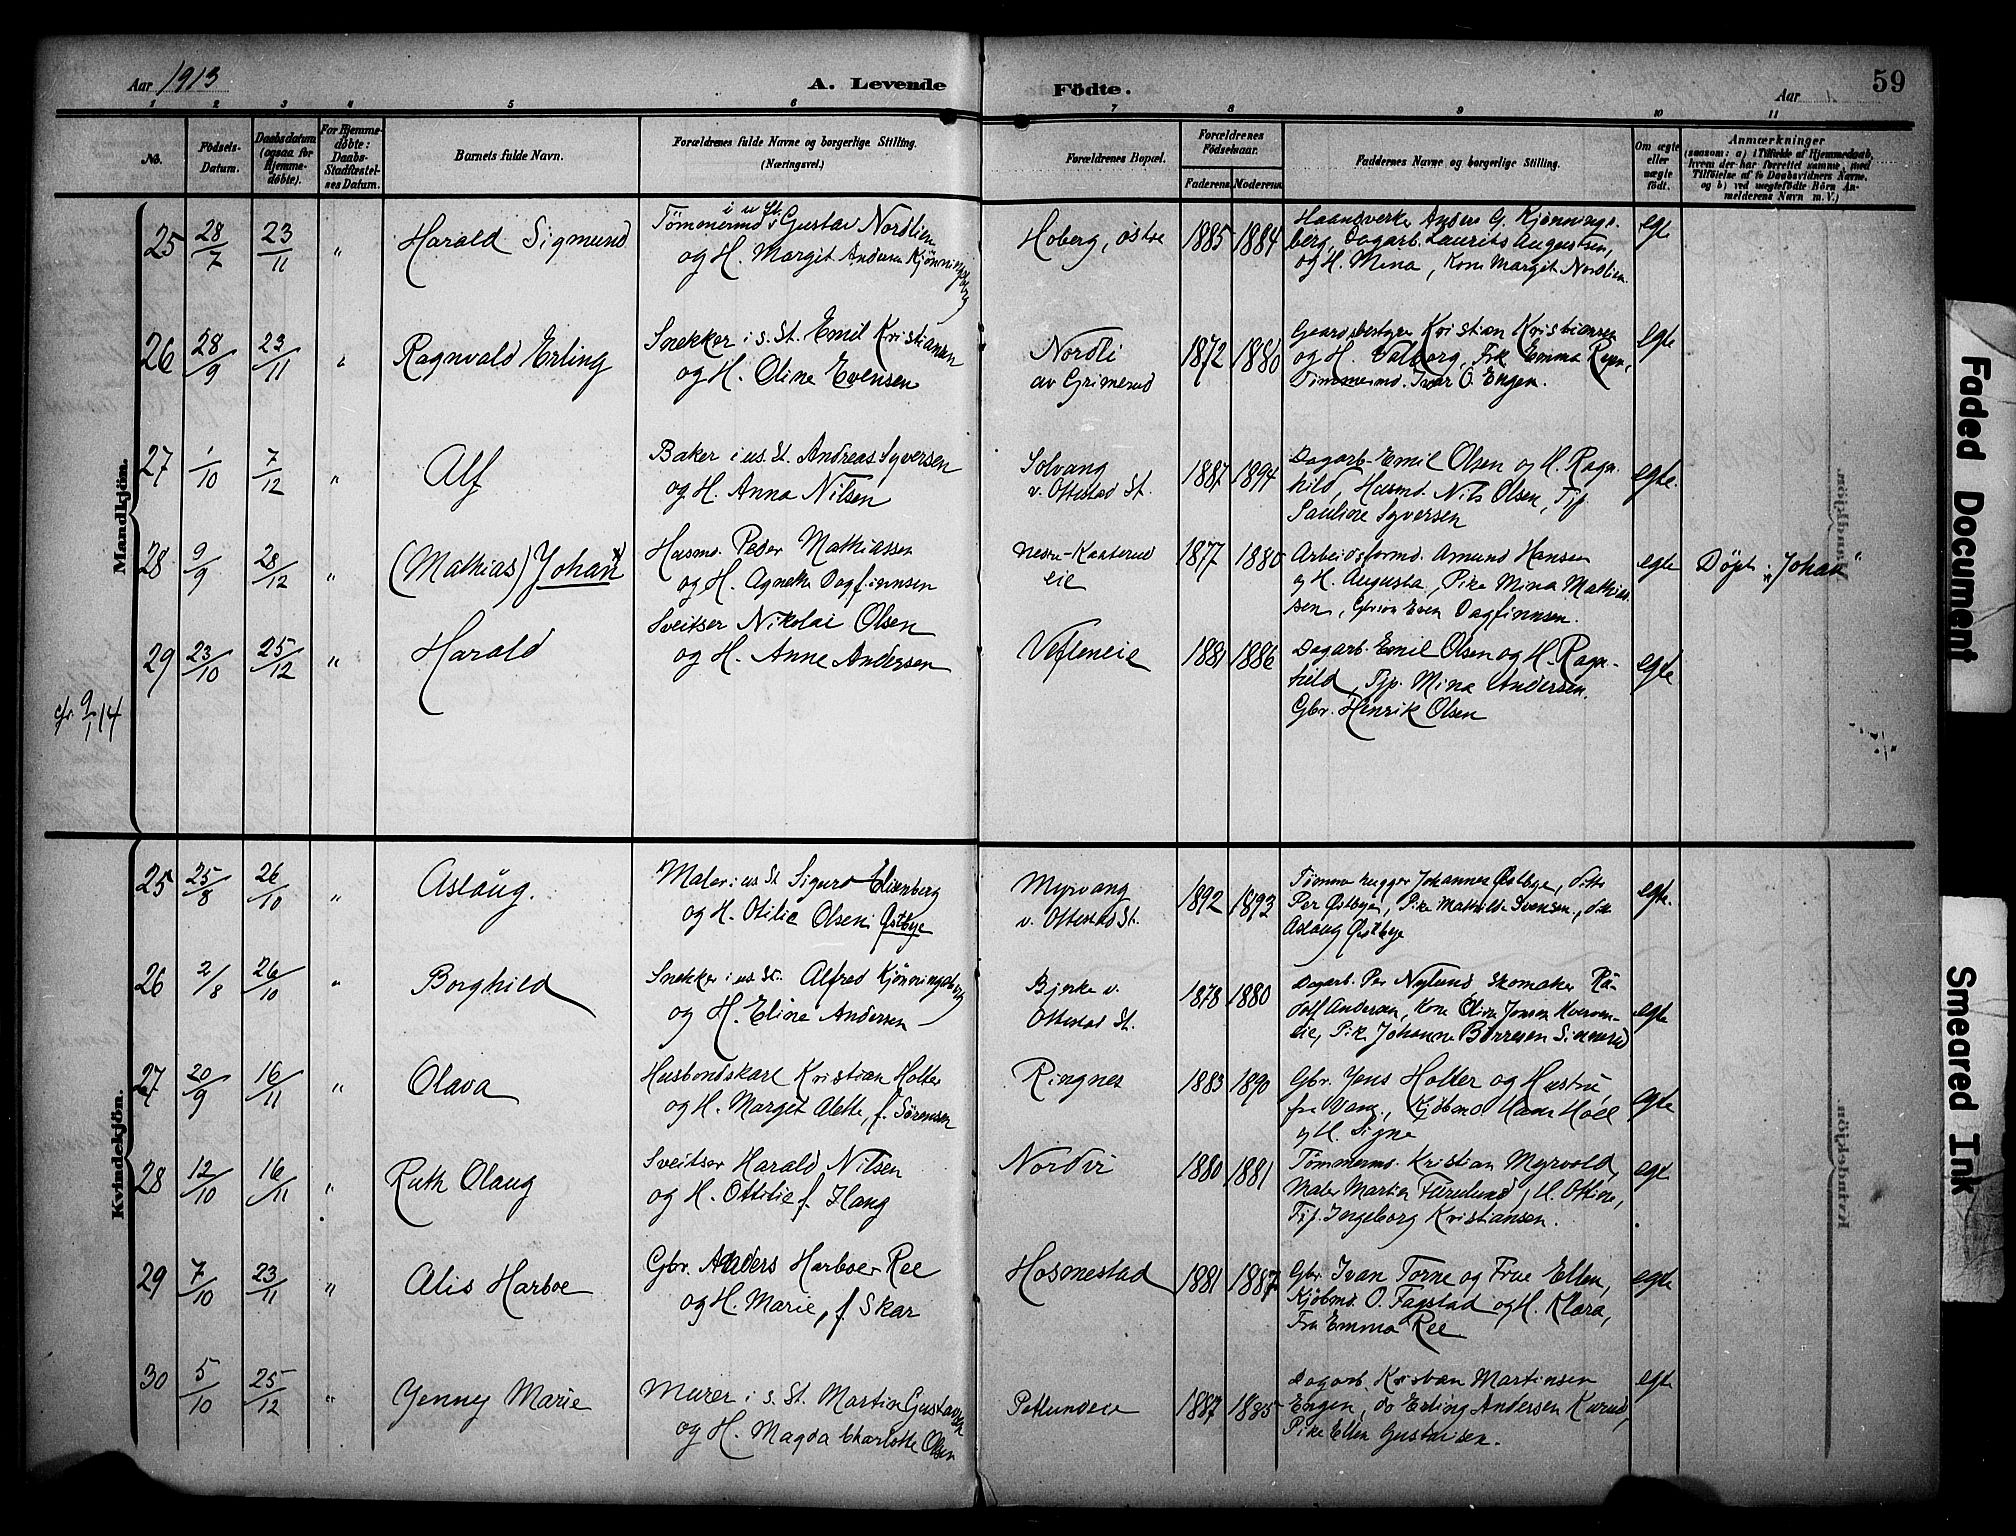 Aar 1913
A. Levende
Födte.
Aar
59
1 2 3 4 5 6 7 8 9 10 11
No.
Födsels-Datum.
Daabsdatum (ogsaa for Hjemme-døbte).
For Hjemme-døbte: Daabs-Stadfæstel-ses Datum.
Barnets fulde Navn.
Forældrenes fulde Navne og borgerlige Stilling. (Næringsvei.)
Forældrenes Bopæl.
Forældrenes Födselsaar.
Faderens. Moderens.
Faddernes Navne og borgerlige Stilling.
Om ægte eller uægte født.
Anmærkninger
(saasom: a) i Tilfælde af Hjemmedaab, hvem der har forrettet samme, med Tilföielse af to Daabsvidners Navne, og b) ved uægtefödte Börn An-melderens Navn m. V.)
Mandkjön.
25 28/7 23/11 " Harald Sigmund
Tømmermd i u St. Gustav Nordlien
og H. Margit Andersen Kjønningsberg
Hoberg, østre 1885 1884
Haandverker Anders G. Kjønnings-
berg, Dagarb. Laurits Augustsen,
og H. Mina, Kone Margit Nordlien
egte
26 28/9 23/11 " Ragnvald Erling
Snekker i s. St. Emil Kristiansen
og H. Oline Evensen
Nordli
av Grimerud
1872 1880
Gaardsbestyrer Kristian Kristiansen
og H. Valborg, Frk Emma
Tømmermd. Ivar O. Engen.
egte
27 1/10 7/12 " Alf
Baker i us. St. Andreas Syversen
og H. Anna Nilsen
Solvang
v. Ottestad St.
1887 1894
Dagarb. Emil Olsen og H. Ragn-
hild, Husmd. Nils Olsen, Pip.
Pauline Syversen
egte.
28 9/9 28/12 " (Mathias) Johan
Husmd. Peder Mathiassen
og H. Agnethe Dagfinnsen
Nedre-Kaaterud
eie
1877 1880
Arbeidsformd. Amund Hansen
og H. Augusta, Pike Mina Mathias-
sen, Even Dagfinnsen.
egte
Døpt „Johan“
29 23/10 25/12 " Harald
Sveitser Nikolai Olsen
og H. Anne Andersen
Vefleneie 1881 1886
Dagarb. Emil Olsen og H. Ragn-
hild, Pip. Mina Andersen.
Gbr. Henrik Olsen
egte
cfr. 9/1 14
Kvindekjön.
25 25/8 26/10 " Aslaug.
Maler i us St Sigurd Elienberg
og H. Otilie Olsen Østbye
Myrvang
v. Ottestad St.
1892 1893
Tømmerhugger Johannes Østbye, ditto
Per Østbye, Pike Mathilde Svensen, do
Aslaug Østbye
egte.
26 2/8 26/10 " Borghild
Snekker i us St. Alfred Kjønningsberg
og H. Eline Andersen
Bjerke v.
Ottestad St.
1878 1880
Dagarb. Per Nylund Skomaker Ru-
dolf Andersen, Kone Oline Jonsen
eie, Pike Johanne Børresen
egte
27 20/9 16/11 " Olava
Husbondskarl Kristian Holter
og H. Marget Alette, f. Sørensen
Ringnes 1883 1890
Gbr. Jens Holter og Hustru
fra Vang, Kjøbmd Hans Hoel
og H. Signe
egte
28 12/10 16/11 " Ruth Olaug
Sveitser Harald Nilsen
og H. Ottilie f. Haug
Nordvi 1880 1881
Tømmermd. Kristian Myrvold,
Maler Martin Furulund, H. Ottine,
Pip. Ingeborg Kristiansen.
egte
29 7/10 23/11 " Alis Harboe
Gbr. Anders Harboe Ree
og H. Marie, f. Skar
Hosmestad 1881 1887
Gbr. Ivan Torne og Frue Ellen,
Kjøbmd. O. Fagstad og H. Klara,
Fru Emma Ree
egte
30 5/10 25/12 " Jenny Marie
Murer i s. St. Martin Gustavsen
og H. Magda Charlotte Olsen
Petlundeie 1887 1885
Dagarb. Kristian Martinsen
Engen, do Erling Andersen
Pike Ellen Gustavsen.
egte
Mandkjön.
Kvindekjön.
Faded Document
Smeared Ink